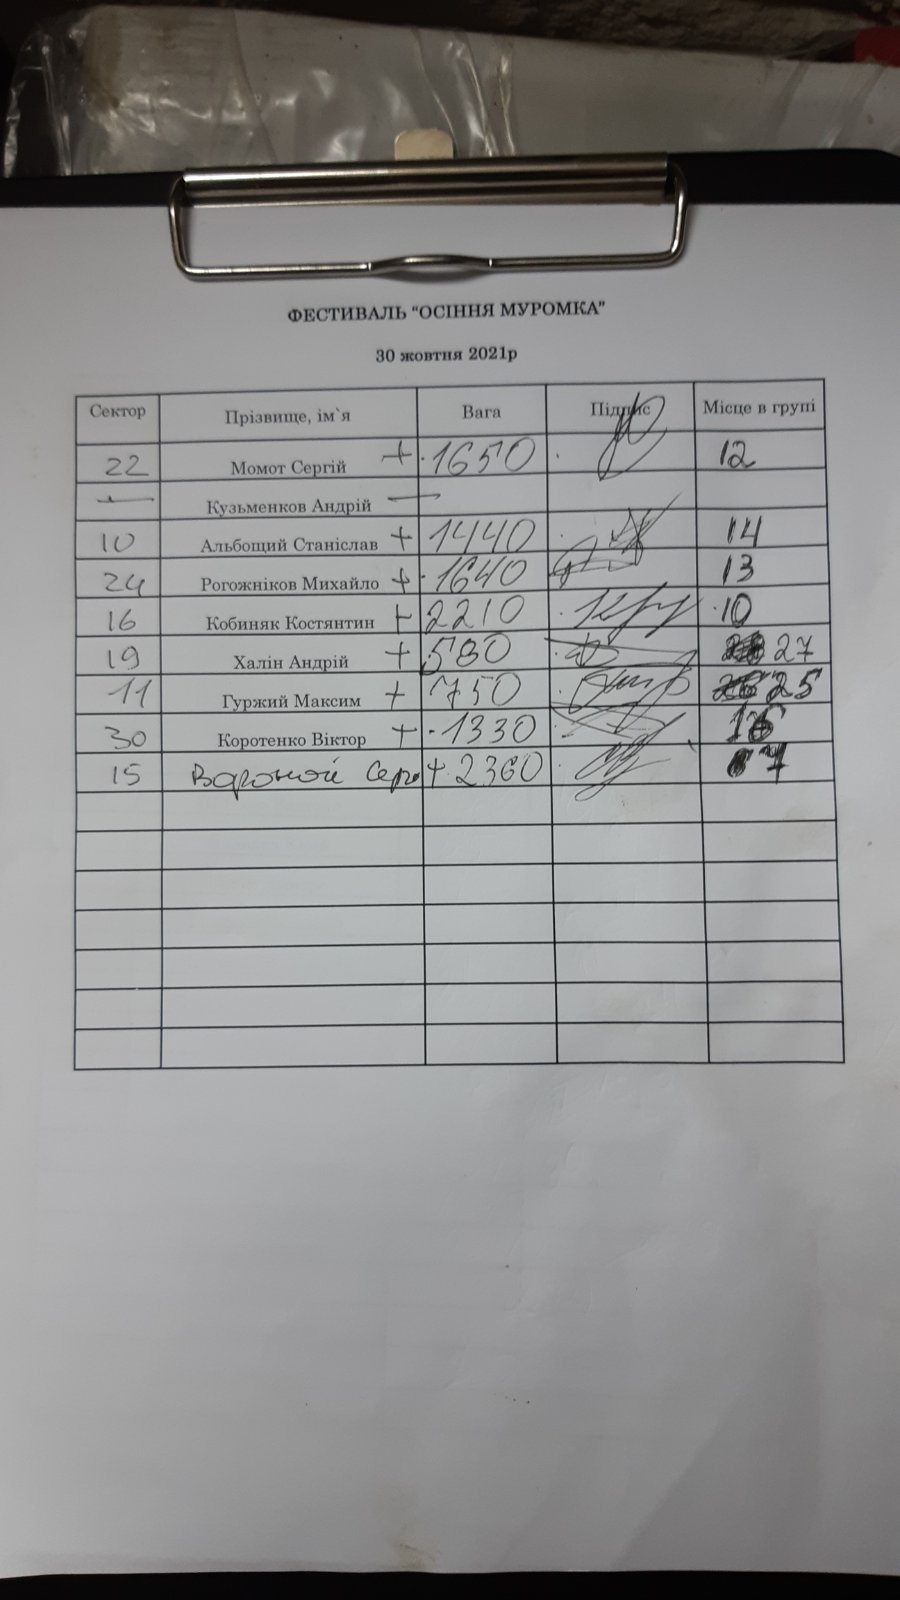 ФЕСТИВАЛЬ "ОСІННЯ МУРОМКА"
30 жовтня 2021р
Сектор Прізвище, ім`я Вага Підпис Місце в групі
22 Момот Сергій + 1650 12
— Кузьменков Андрій —
10 Альбощий Станіслав + 1440 14
24 Рогожніков Михайло + 1640 13
16 Кобиняк Костянтин + 2210 10
19 Халін Андрій + 580 27
11 Гуржий Максим + 750 25
30 Коротенко Віктор + 1330
15 Вороной + 2360 7